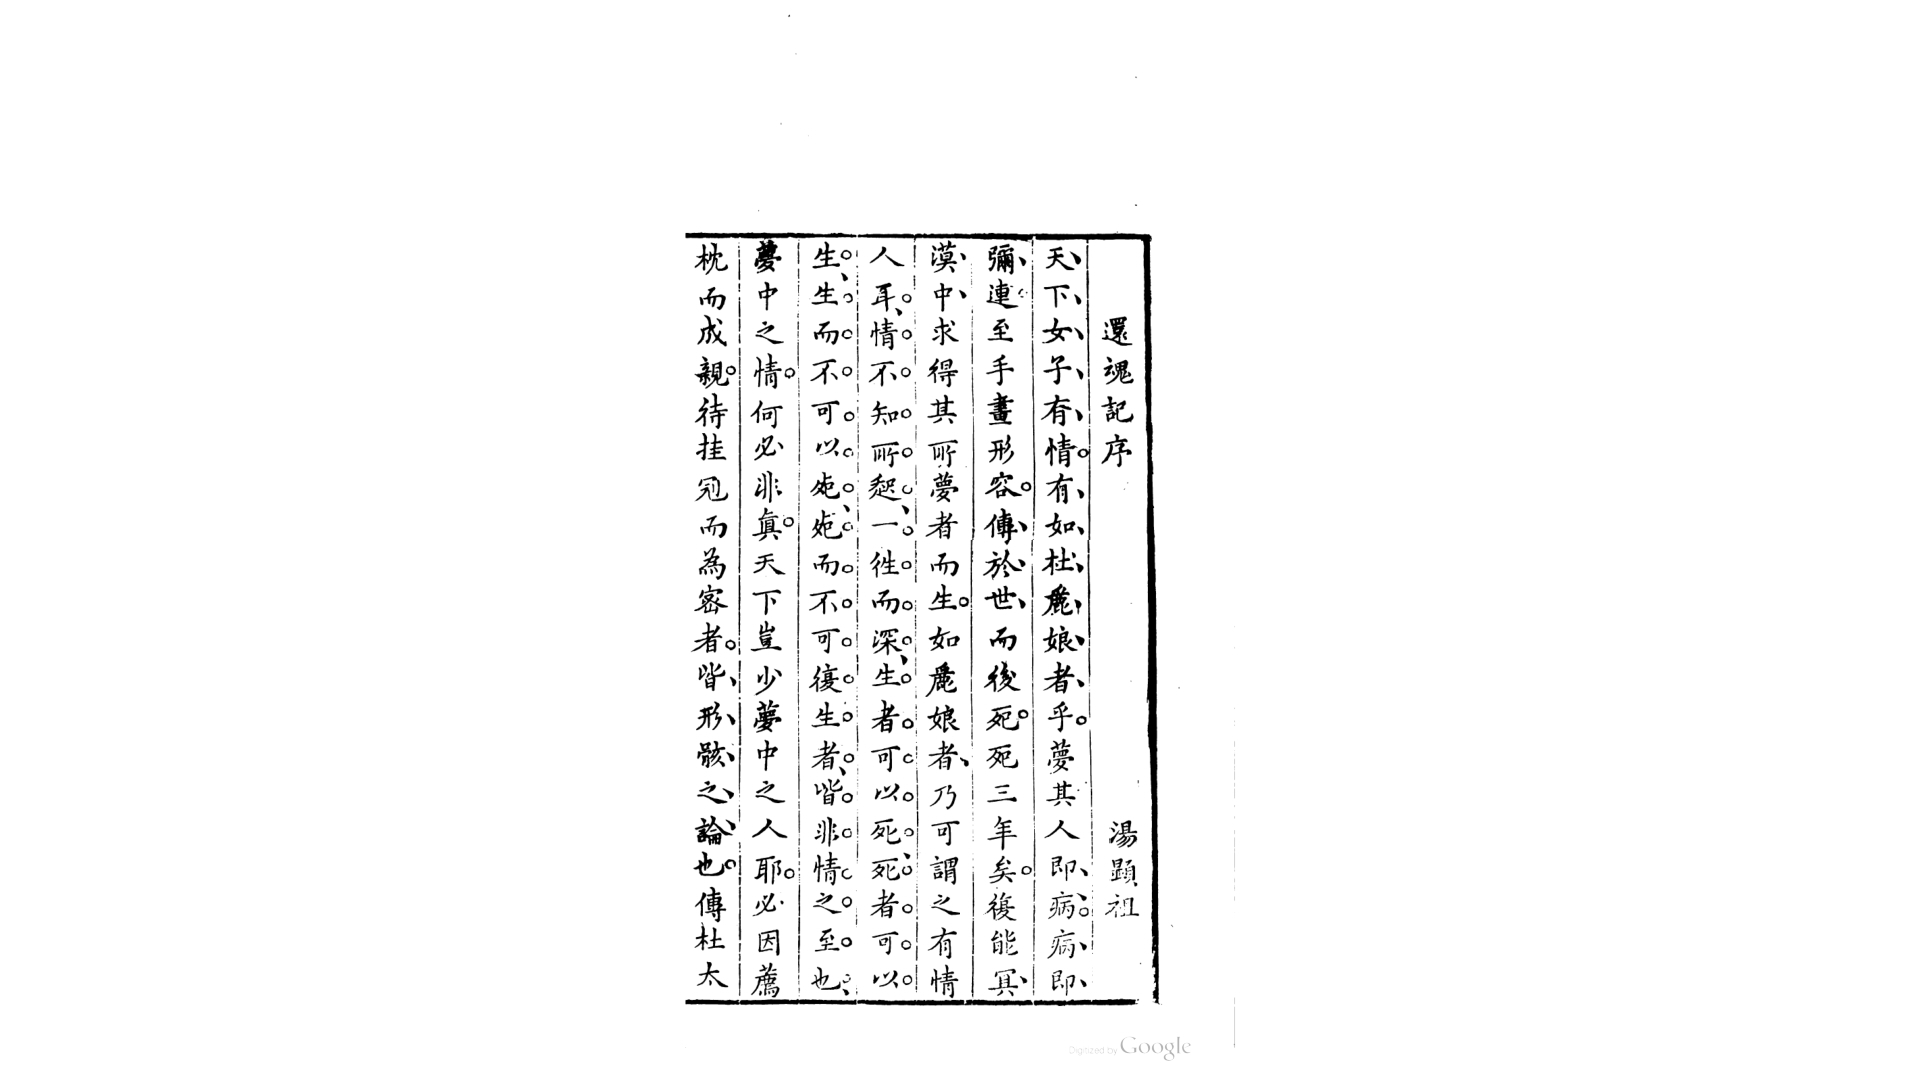 還魂記序 湯顯祖
天下女子有情有如杜麗娘者乎夢其人即病病即
彌連至手畫形容傳於世而後死死三年矣復能冥
漠中求得其所夢者而生如麗娘者乃可謂之有情
人耳情不知所起一往而深生者可以死死者可以
生生而不可以死死而不可復生者皆非情之至也
夢中之情何必非真天下豈少夢中之人耶必因薦
枕而成親待挂冠而為密者皆形骸之論也傳杜太
Digitized by Google